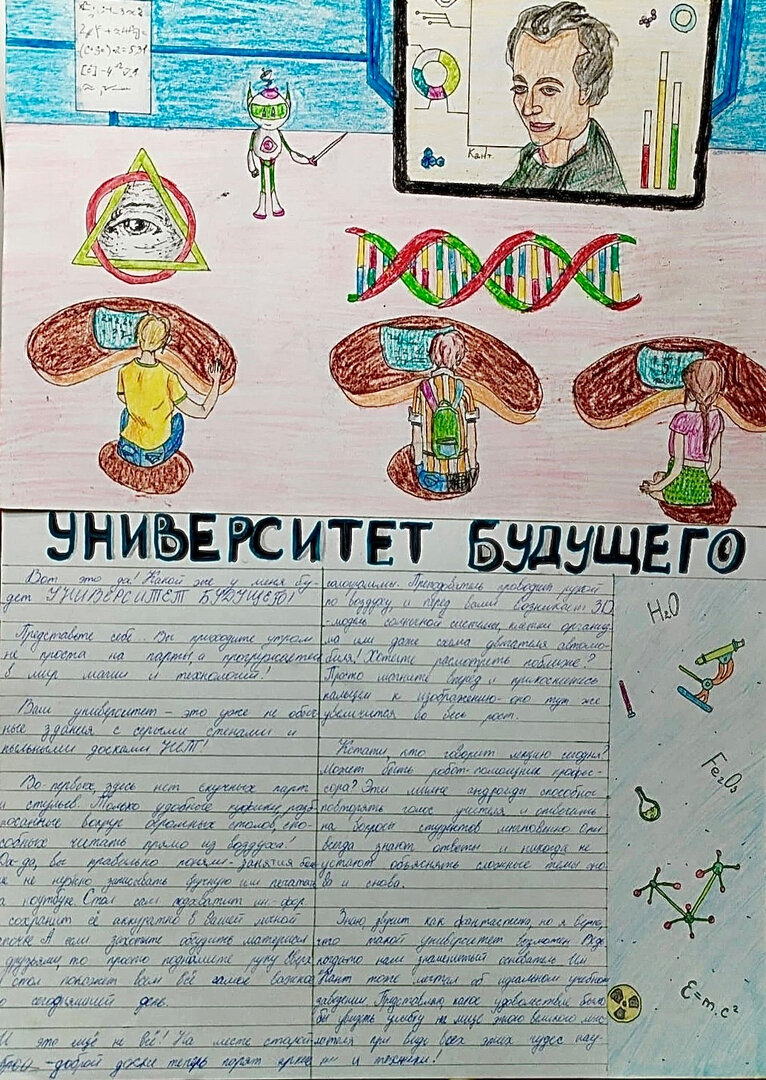 2x² + 4x+y=
(c+3c)+2=5,31
Кант.
УНИВЕРСИТЕТ БУДУЩЕГО
Вот это да! Какой же у меня бу-
дет УНИВЕРСИТЕТ БУДУЩЕГО!
Представьте себе. Вы приходите утром
не проста на парты, а погружаетесь
в мир магии и технологий!
Ваш университет – это уже не обыч-
ные здания с серыми стенами и
пыльными досками НЕТ!
Во-первых, здесь нет скучных парт
и стульев. Только удобные
вокруг огромных столов, спо-
собных читать прямо из воздуха!
Ох-да, вы правильно поняли – занятия
не нужно записывать вручную или
ноутбук. Стол сам подхватит ин-фор
сохранит её аккуратно в вашей личной
А если захотите обсудить материал
друзьями, то просто поднимите руку вверх
стол покажет всем всё самое важное
о сегодняшнем день.
И это ещё не всё! На месте старой
доброй – доброй доски теперь парят яркие
голограммы. Преподаватель проводит рукой
по воздуху, и перед вами возникает 3D
-модель солнечной системы, клетки организ
ма или даже схема двигателя автомо-
биля! Хотите рассмотреть поближе?
Просто махните вперед и прикоснитесь
пальцем к изображению – оно тут же
увеличится во весь рост.
Кстати, кто говорит лекцию сегодня?
Может быть робот-помощник профес-
сора? Эти милые андроиды способны
повторять голос учителя и отвечать
на вопросы студентов мгновенно Они
всегда знают ответы и никогда не
устают объяснять сложные темы сно-
ва и снова.
Знаю, звучит как фантастика, но я верю,
что такой университет возможен Ведь
когда-то наш знаменитый основатель Им
Кант тоже мечтал об идеальном учебном
заведении. Представляю, какое удовольствие было
бы увидеть улыбку на лице этого великого мыс
лителя при виде всех этих чудес нау-
ки и техники!
H₂O
Fe₂O₃
E=m.c²